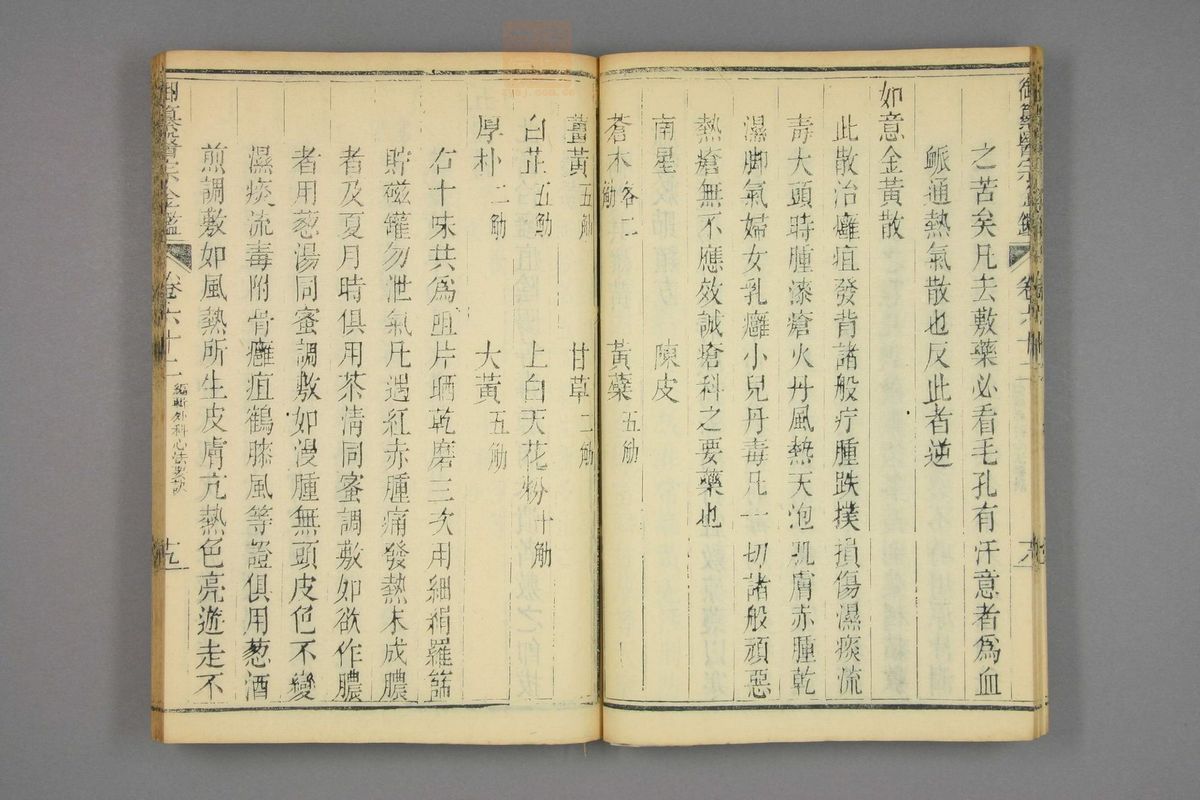 御纂醫宗金鑑
卷六十二
之苦矣凡去敷藥必看毛孔有汗意者為血
脈通熱氣散也反此者逆
如意金黃散
此散治癰疽發背諸般疔腫跌撲損傷濕痰流
毒大頭時腫漆瘡火丹風熱天泡肌膚赤腫乾
濕脚氣婦女乳癰小兒丹毒凡一切諸般頑惡
熱瘡無不應效誠瘡科之要藥也
南星 陳皮
蒼术各二觔 黃蘗五觔
薑黃五觔 甘草二觔
白芷五觔 上白天花粉十觔
厚朴二觔 大黃五觔
右十味共為咀片晒乾磨三次用細絹羅篩
貯磁罐勿泄氣凡遇紅赤腫痛發熱未成膿
者及夏月時俱用茶清同蜜調敷如欲作膿
者用葱湯同蜜調敷如漫腫無頭皮色不變
濕痰流毒附骨癰疽鶴膝風等證俱用葱酒
煎調敷如風熱所生皮膚亢熱色亮遊走不
御纂醫宗金鑑
卷六十二
編輯外科心法要訣
十九